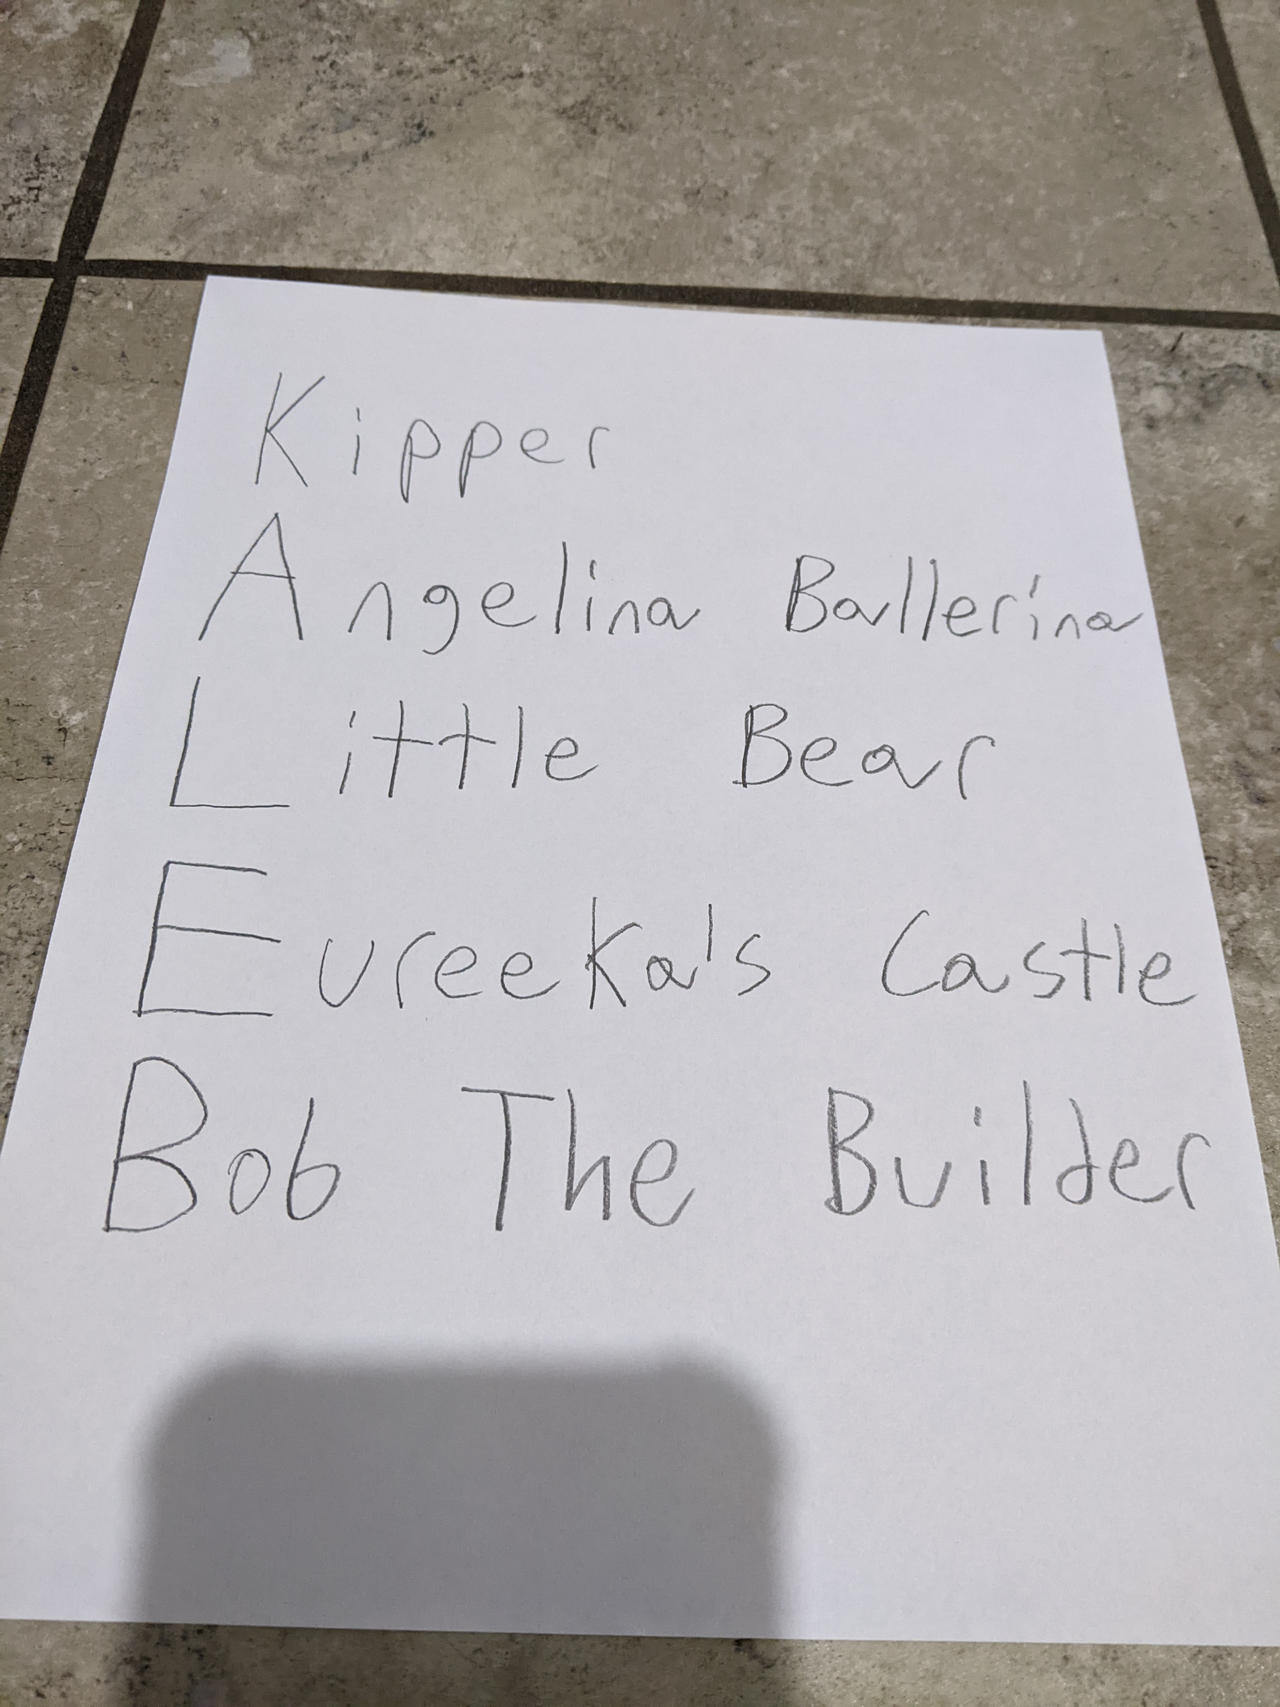 Kipper
Angelina Ballerina
Little Bear
Eureeka's Castle
Bob The Builder